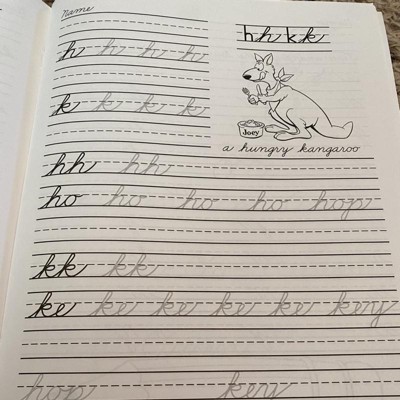 name
h h k k
h h h h h
k k k k k
Joey
a hungry kangaroo
hh hh
ho ho ho ho hop
kk kk
ke ke ke ke ke key
hop key